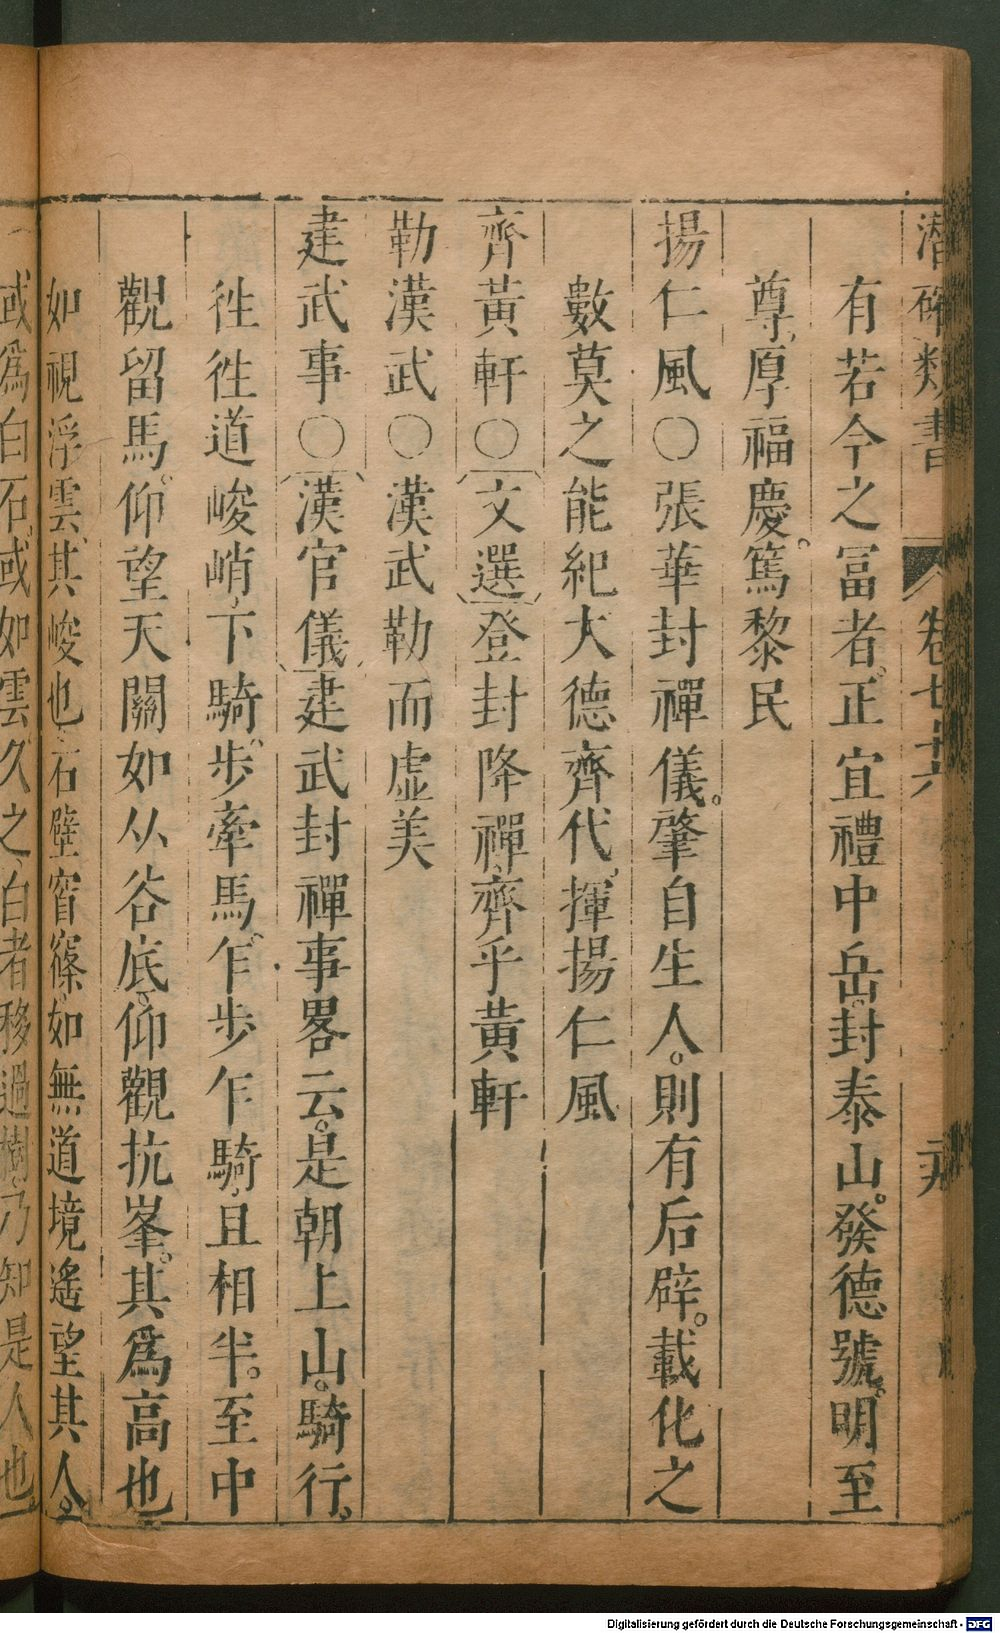 潛確類書 卷七十六 二九
有若今之冨者、正宜禮中岳。封泰山。發德號。明至
尊。厚福慶。篤黎民
揚仁風〇張華封禪儀。肇自生人。則有后辟。載化之
數莫之能紀大德齊代、揮揚仁風
齊黃軒〇文選登封降禪、齊乎黃軒
勒漢武〇漢武勒而虛美
建武事〇漢官儀建武封禪事畧云。是朝上山。騎行。
徃徃道峻峭、下騎、步牽馬、乍步乍騎、且相半。至中
觀留馬。仰望天關如从谷底、仰觀抗峯。其爲高也
如視浮雲、其峻也、石壁窅窱、如無道境遙望其人。
或爲白石、或如雲、久之、白者移過樹、乃知是人也
Digitalisierung gefördert durch die Deutsche Forschungsgemeinschaft - DFG